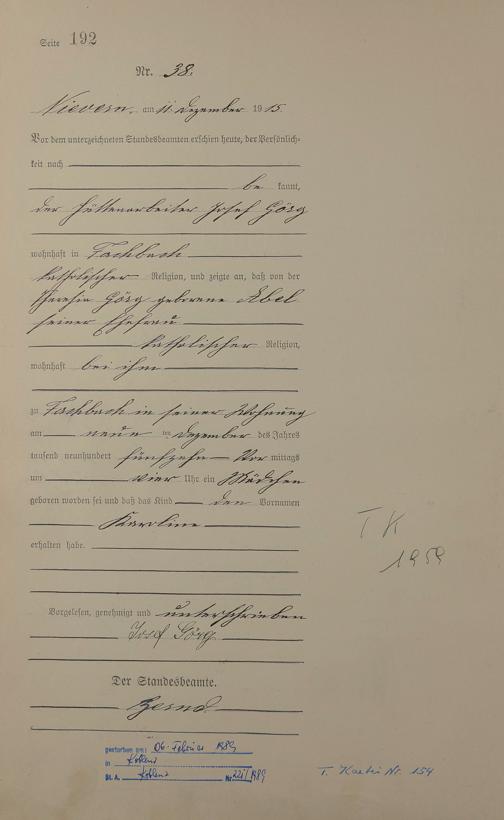 Seite 192
Nr. 38.
Nievern, am 11. Dezember 1915.
Vor dem unterzeichneten Standesbeamten erschien heute, der Persönlich-
keit nach
be kannt,
der Hüttenarbeiter Josef Görg
wohnhaft in Fachbach
katholischer Religion, und zeigte an, daß von der
Theresia Görg geborene Abel
seiner Ehefrau
katholischer Religion,
wohnhaft bei ihm
zu Fachbach in seiner Wohnung
am neun ten Dezember des Jahres
tausend neunhundert fünfzehn Vor mittags
um vier Uhr ein Mädchen
geboren worden sei und daß das Kind den Vornamen
Karoline
erhalten habe.
T K
1959
Vorgelesen, genehmigt und unterschrieben
Josef Görg
Der Standesbeamte.
gestorben am: 06. Februar 1989
in Koblenz
St. A. Koblenz Nr. 221/1989
T. Kartei Nr. 154